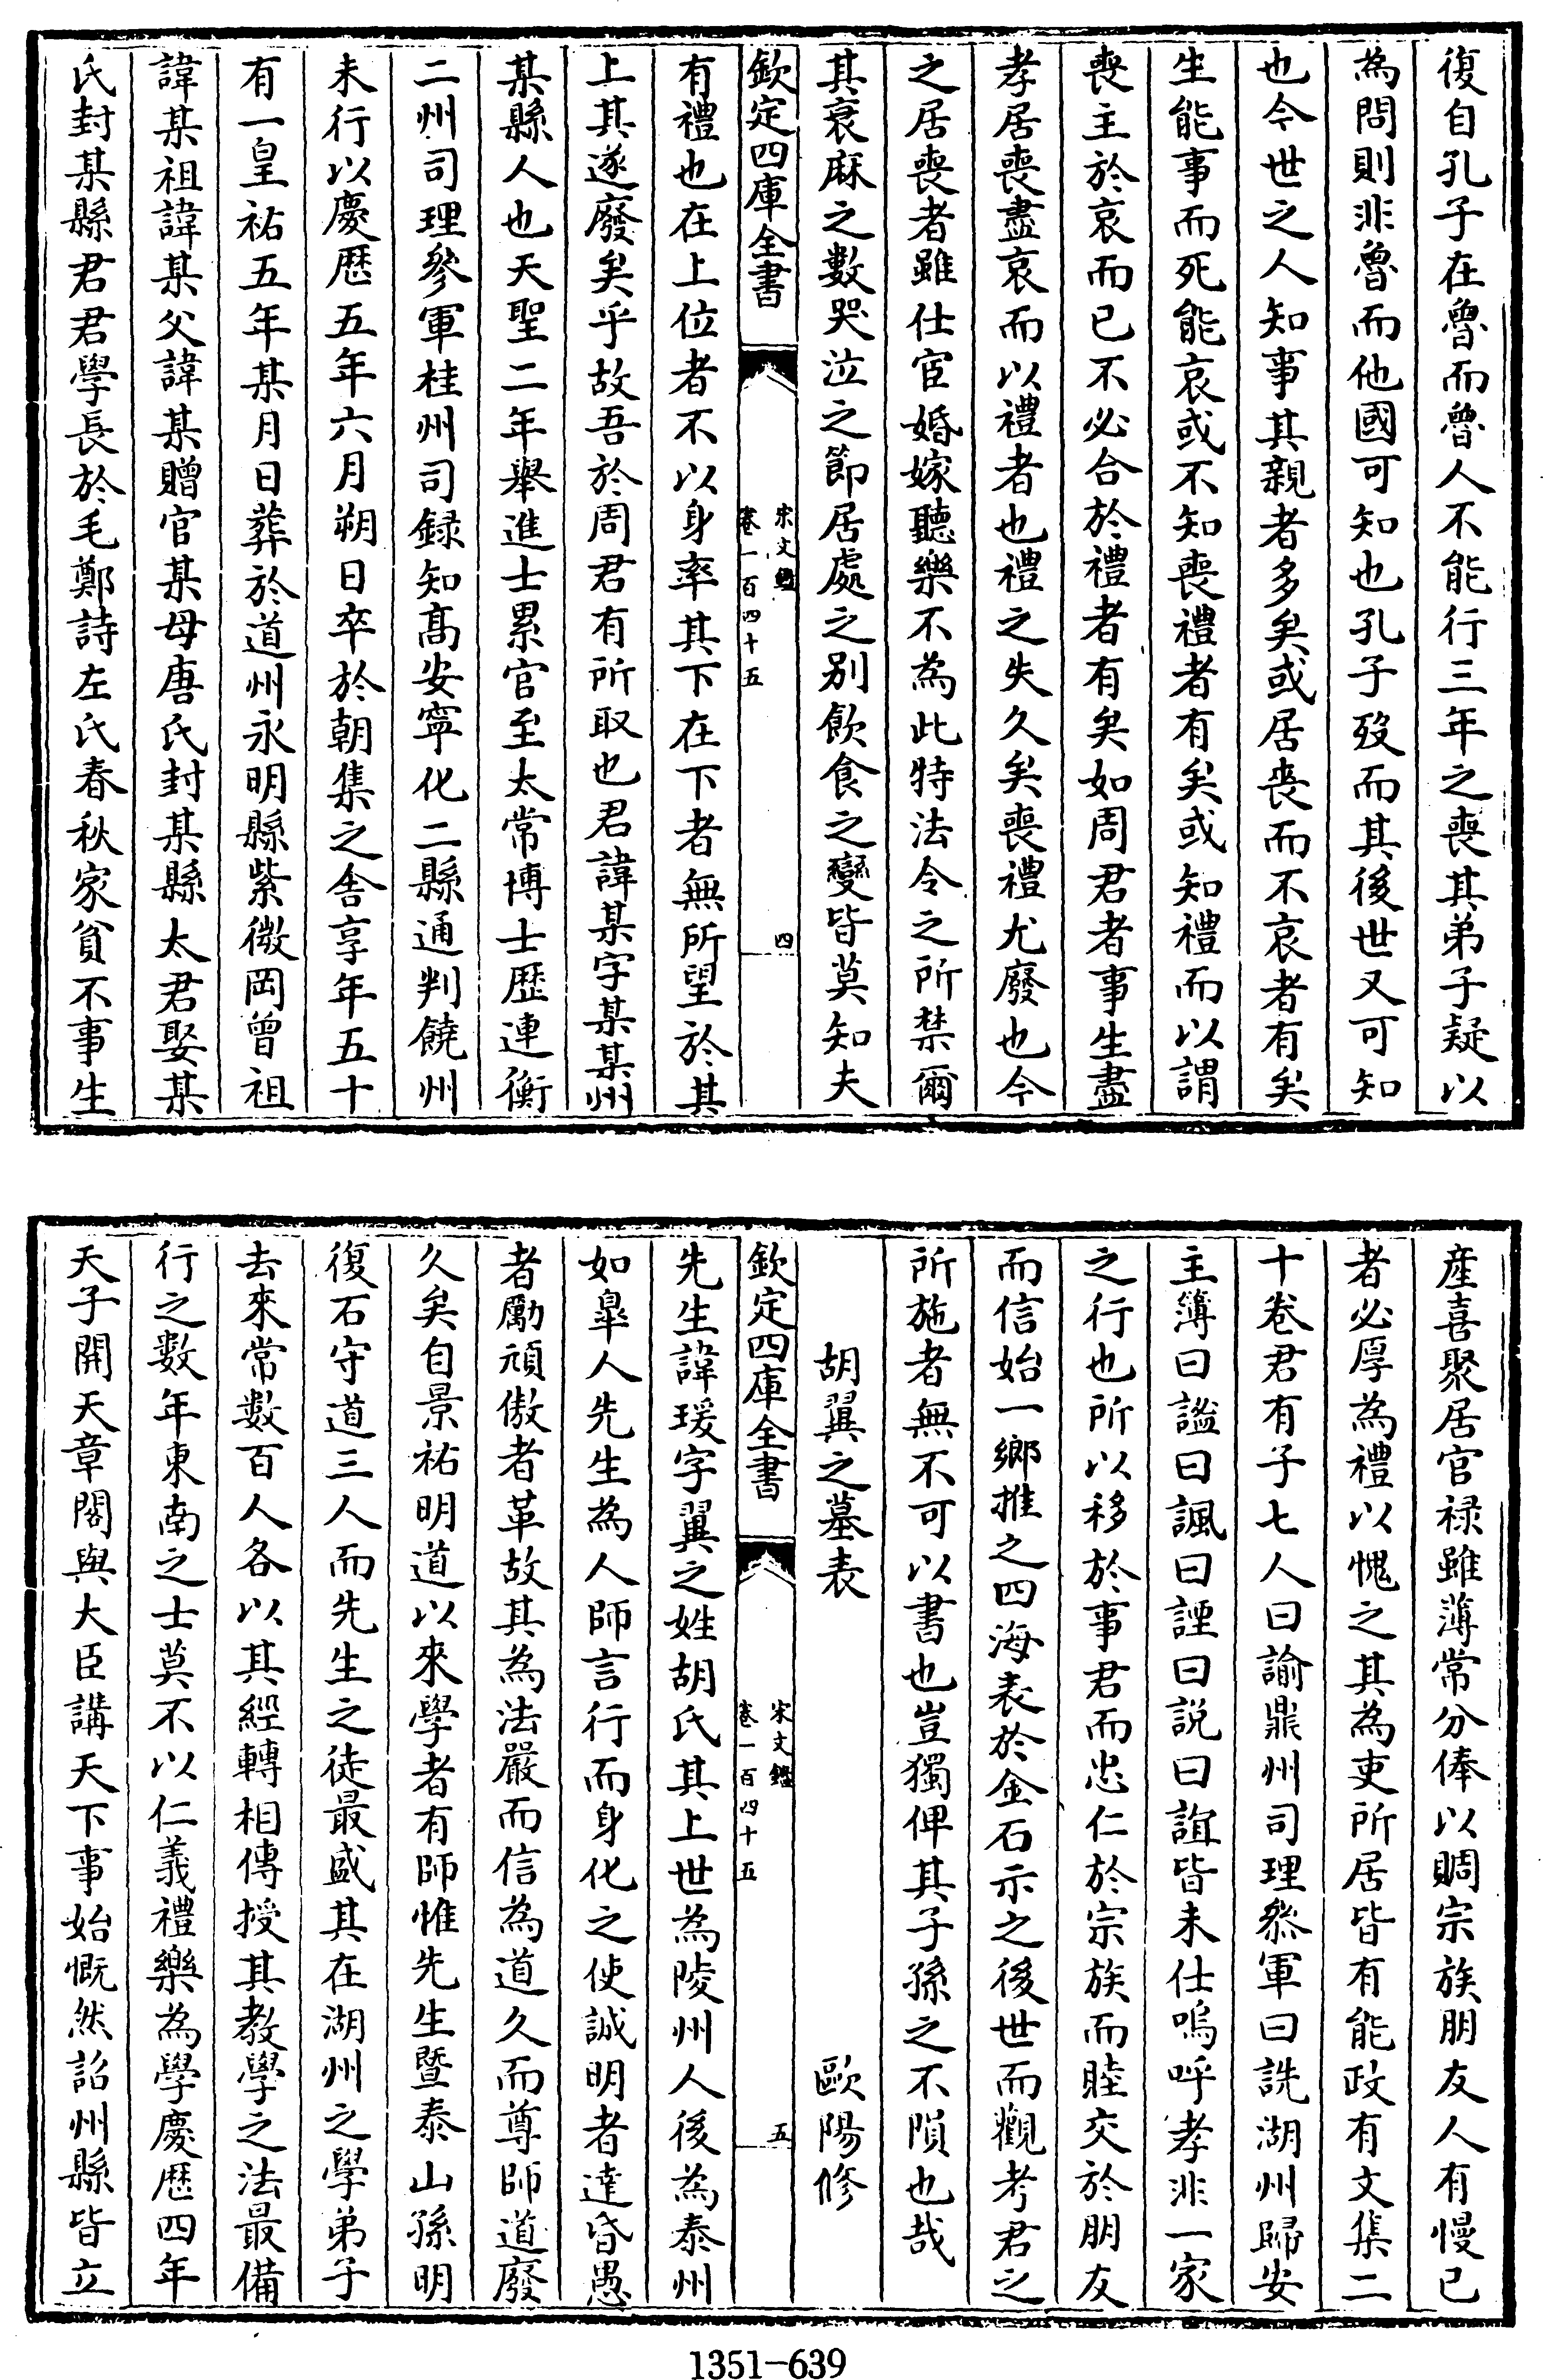 復自孔子在魯而魯人不能行三年之喪其弟子疑以
為問則非魯而他國可知也孔子歿而其後世又可知
也今世之人知事其親者多矣或居喪而不哀者有矣
生能事而死能哀或不知喪禮者有矣或知禮而以謂
喪主於哀而已不必合於禮者有矣如周君者事生盡
孝居喪盡哀而以禮者也禮之失久矣喪禮尤廢也今
之居喪者雖仕宦婚嫁聽樂不為此特法令之所禁爾
其衰麻之數哭泣之節居處之別飲食之變皆莫知夫
欽定四庫全書
宋文鑑
卷一百四十五
四
有禮也在上位者不以身率其下在下者無所望於其
上其遂廢矣乎故吾於周君有所取也君諱某字某某州
某縣人也天聖二年舉進士累官至太常博士歷連衡
二州司理參軍桂州司録知髙安寧化二縣通判饒州
未行以慶厯五年六月朔日卒於朝集之舎享年五十
有一皇祐五年某月日葬於道州永明縣紫微岡曾祖
諱某祖諱某父諱某贈官某母唐氏封某縣太君娶某
氏封某縣君君學長於毛鄭詩左氏春秋家貧不事生
産喜聚居官禄雖薄常分俸以賙宗族朋友人有慢已
者必厚為禮以愧之其為吏所居皆有能政有文集二
十卷君有子七人曰諭鼎州司理叅軍曰詵湖州歸安
主簿曰謐曰諷曰諲曰説曰誼皆未仕嗚呼孝非一家
之行也所以移於事君而忠仁於宗族而睦交於朋友
而信始一鄉推之四海表於金石示之後世而觀考君之
所施者無不可以書也豈獨俾其子孫之不隕也哉
胡翼之墓表　歐陽修
欽定四庫全書
宋文鑑
卷一百四十五
五
先生諱瑗字翼之姓胡氏其上世為陵州人後為泰州
如臯人先生為人師言行而身化之使誠明者達昏愚
者勵頑傲者革故其為法嚴而信為道久而尊師道廢
久矣自景祐明道以來學者有師惟先生暨泰山孫明
復石守道三人而先生之徒最盛其在湖州之學弟子
去來常數百人各以其經轉相傳授其教學之法最備
行之数年東南之士莫不以仁義禮樂為學慶厯四年
天子開天章閣與大臣講天下事始慨然詔州縣皆立
1351-639